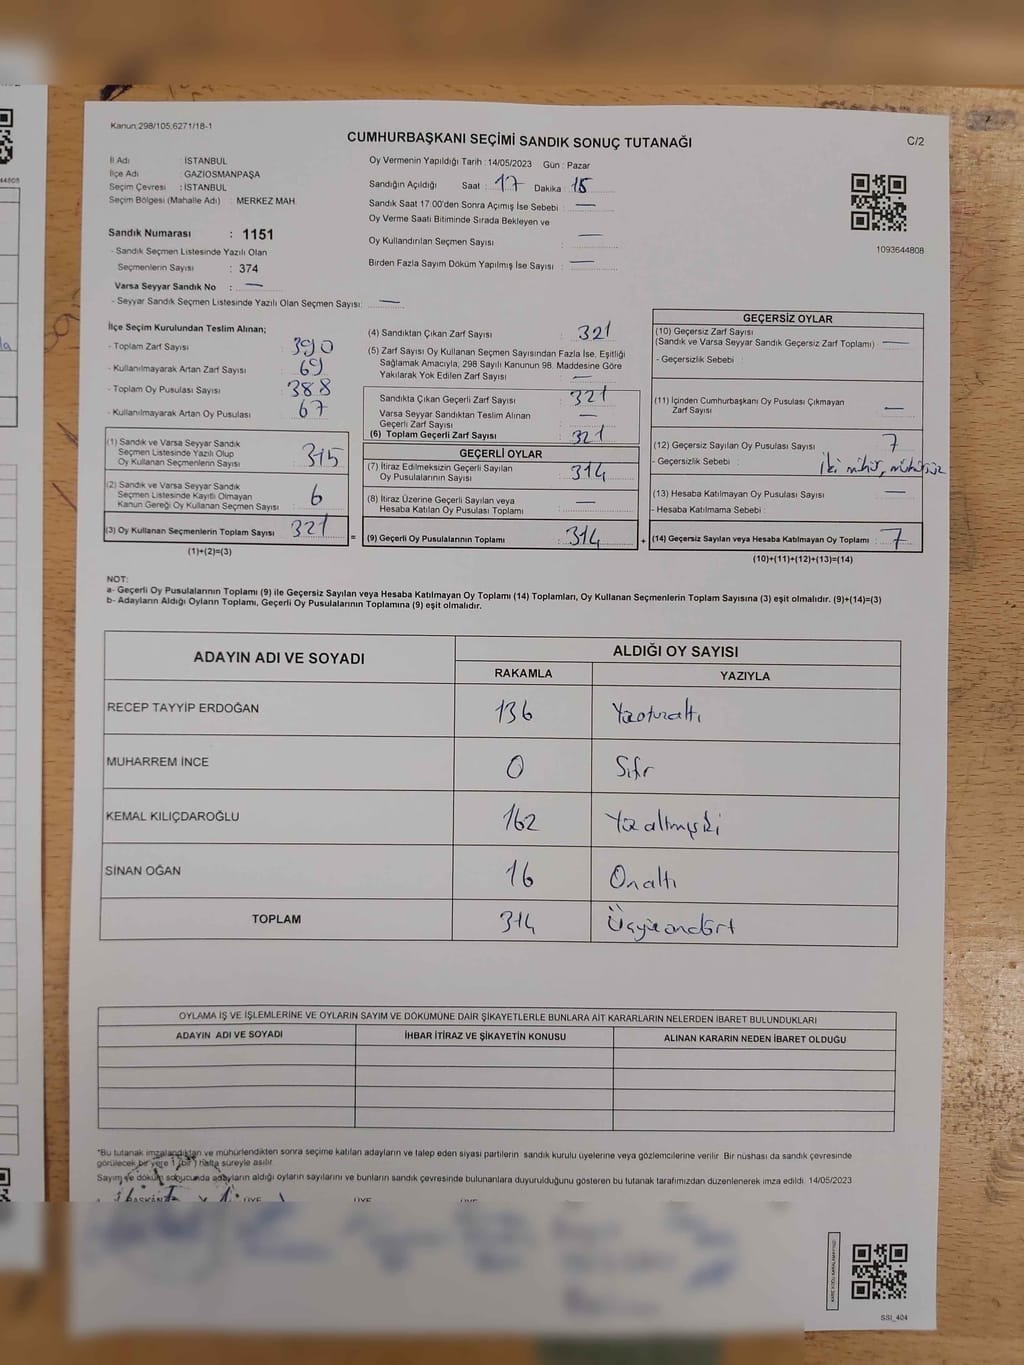 Kanun;298/105;6271/18-1
CUMHURBAŞKANI SEÇİMİ SANDIK SONUÇ TUTANAĞI
C/2
İl Adı : İSTANBUL
İlçe Adı : GAZİOSMANPAŞA
Seçim Çevresi : İSTANBUL
Seçim Bölgesi (Mahalle Adı) : MERKEZ MAH.
Sandık Numarası : 1151
- Sandık Seçmen Listesinde Yazılı Olan
Seçmenlerin Sayısı : 374
Varsa Seyyar Sandık No : —
- Seyyar Sandık Seçmen Listesinde Yazılı Olan Seçmen Sayısı: —
Oy Vermenin Yapıldığı Tarih : 14/05/2023 Gün : Pazar
Sandığın Açıldığı Saat : 17 Dakika : 15
Sandık Saat 17:00'den Sonra Açımış İse Sebebi : —
Oy Verme Saati Bitiminde Sırada Bekleyen ve
Oy Kullandırılan Seçmen Sayısı : —
Birden Fazla Sayım Döküm Yapılmış İse Sayısı : —
1093644808
İlçe Seçim Kurulundan Teslim Alınan;
- Toplam Zarf Sayısı : 390
- Kullanılmayarak Artan Zarf Sayısı : 69
- Toplam Oy Pusulası Sayısı : 388
- Kullanılmayarak Artan Oy Pusulası : 67
(1) Sandık ve Varsa Seyyar Sandık
Seçmen Listesinde Yazılı Olup
Oy Kullanan Seçmenlerin Sayısı : 315
(2) Sandık ve Varsa Seyyar Sandık
Seçmen Listesinde Kayıtlı Olmayan
Kanun Gereği Oy Kullanan Seçmen Sayısı : 6
(3) Oy Kullanan Seçmenlerin Toplam Sayısı : 321
(1)+(2)=(3)
(4) Sandıktan Çıkan Zarf Sayısı : 321
(5) Zarf Sayısı Oy Kullanan Seçmen Sayısından Fazla İse, Eşitliği
Sağlamak Amacıyla, 298 Sayılı Kanunun 98. Maddesine Göre
Yakılarak Yok Edilen Zarf Sayısı : —
Sandıkta Çıkan Geçerli Zarf Sayısı : 321
Varsa Seyyar Sandıktan Teslim Alınan
Geçerli Zarf Sayısı : —
(6) Toplam Geçerli Zarf Sayısı : 321
GEÇERLİ OYLAR
(7) İtiraz Edilmeksizin Geçerli Sayılan
Oy Pusulalarının Sayısı : 314
(8) İtiraz Üzerine Geçerli Sayılan veya
Hesaba Katılan Oy Pusulası Toplamı : —
= (9) Geçerli Oy Pusulalarının Toplamı : 314 +
GEÇERSİZ OYLAR
(10) Geçersiz Zarf Sayısı
(Sandık ve Varsa Seyyar Sandık Geçersiz Zarf Toplamı) : —
- Geçersizlik Sebebi :
(11) İçinden Cumhurbaşkanı Oy Pusulası Çıkmayan
Zarf Sayısı : —
(12) Geçersiz Sayılan Oy Pusulası Sayısı : 7
- Geçersizlik Sebebi : İki mühür, mühürsüz
(13) Hesaba Katılmayan Oy Pusulası Sayısı : —
- Hesaba Katılmama Sebebi :
(14) Geçersiz Sayılan veya Hesaba Katılmayan Oy Toplamı : 7
(10)+(11)+(12)+(13)=(14)
NOT:
a- Geçerli Oy Pusulalarının Toplamı (9) ile Geçersiz Sayılan veya Hesaba Katılmayan Oy Toplamı (14) Toplamları, Oy Kullanan Seçmenlerin Toplam Sayısına (3) eşit olmalıdır. (9)+(14)=(3)
b- Adayların Aldığı Oyların Toplamı, Geçerli Oy Pusulalarının Toplamına (9) eşit olmalıdır.
ADAYIN ADI VE SOYADI ALDIĞI OY SAYISI
RAKAMLA YAZIYLA
RECEP TAYYİP ERDOĞAN 136 Yüzotuzaltı
MUHARREM İNCE 0 Sıfır
KEMAL KILIÇDAROĞLU 162 Yüzaltmışiki
SİNAN OĞAN 16 Onaltı
TOPLAM 314 Üçyüzondört
OYLAMA İŞ VE İŞLEMLERİNE VE OYLARIN SAYIM VE DÖKÜMÜNE DAİR ŞİKAYETLERLE BUNLARA AİT KARARLARIN NELERDEN İBARET BULUNDUKLARI
ADAYIN ADI VE SOYADI İHBAR İTİRAZ VE ŞİKAYETİN KONUSU ALINAN KARARIN NEDEN İBARET OLDUĞU
*Bu tutanak imzalandıktan ve mühürlendikten sonra seçime katılan adayların ve talep eden siyasi partilerin sandık kurulu üyelerine veya gözlemcilerine verilir. Bir nüshası da sandık çevresinde
görülecek bir yere 1 (bir ) hafta süreyle asılır.
Sayım ve döküm sonucunda adayların aldığı oyların sayılarını ve bunların sandık çevresinde bulunanlara duyurulduğunu gösteren bu tutanak tarafımızdan düzenlenerek imza edildi. 14/05/2023
BAŞKAN ÜYE ÜYE ÜYE
SSI_404